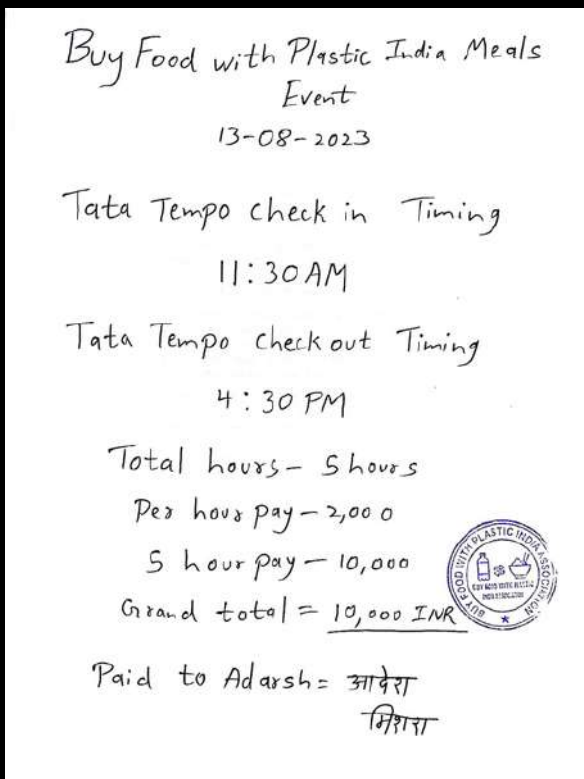 Buy Food with Plastic India Meals
Event
13-08-2023
Tata Tempo check in Timing
11:30 AM
Tata Tempo check out Timing
4:30 PM
Total hours - 5 hours
Per hour pay - 2,000
5 hour pay - 10,000
Grand total = 10,000 INR
BUY FOOD WITH PLASTIC INDIA ASSOCIATION
BUY FOOD WITH PLASTIC
INDIA ASSOCIATION
Paid to Adarsh = आदेश
मिशरा